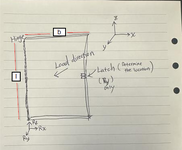 b
Hinge
z
x
y
Load direction
l
Latch (Determine
the location)
(Ry)
only
Rz
Rx
Ry